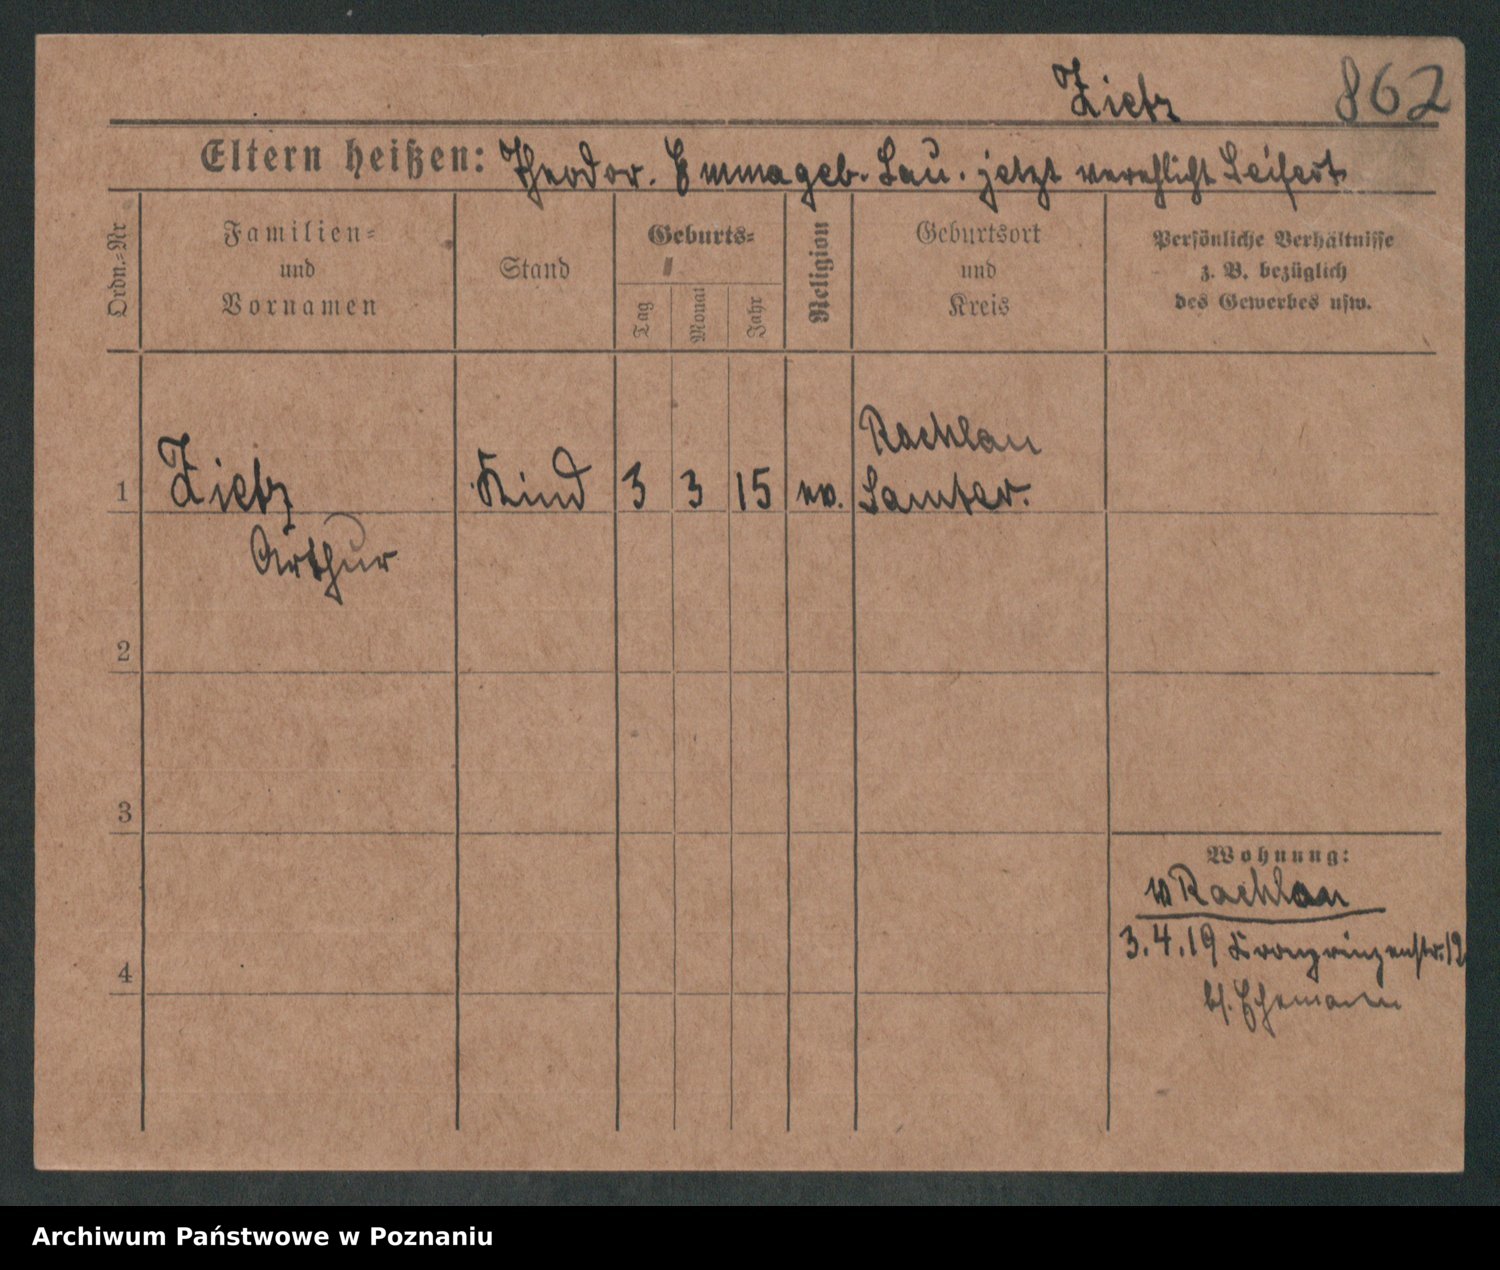 Zietz 862
Eltern heißen: Theodor. Emma geb. Lau. jetzt verehlicht Seifert
Ordn.-Nr
Familien-
und
Vornamen
Stand
Geburts-
Tag
Monat
Jahr
Religion
Geburtsort
und
Kreis
Persönliche Verhältnisse
z. B. bezüglich
des Gewerbes usw.
Rachlau
1 Zietz Kind 3 3 15 ev. Samter.
Arthur
2
3
4
Wohnung:
Rachlau
3.4.19 Kronprinzenstr. 12
b/. Ehemann
Archiwum Państwowe w Poznaniu